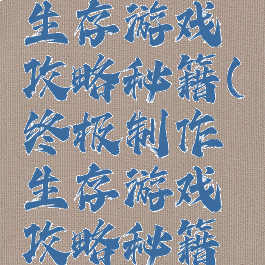 生存游戏
攻略秘籍(
终极制作
生存游戏
攻略秘籍